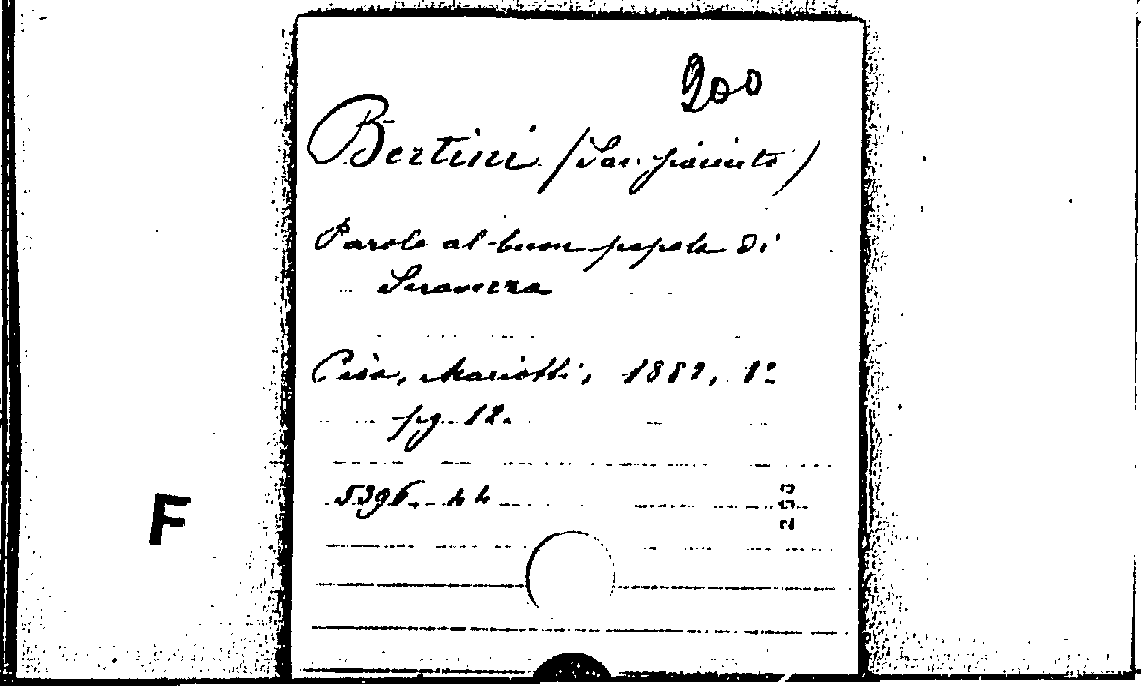 200
Bertini (Sac. Giacinto)
Parole al buon popolo di
Seravezza
Pisa, Mariotti, 1882, 8º
pg. 12.
5396. 44
F